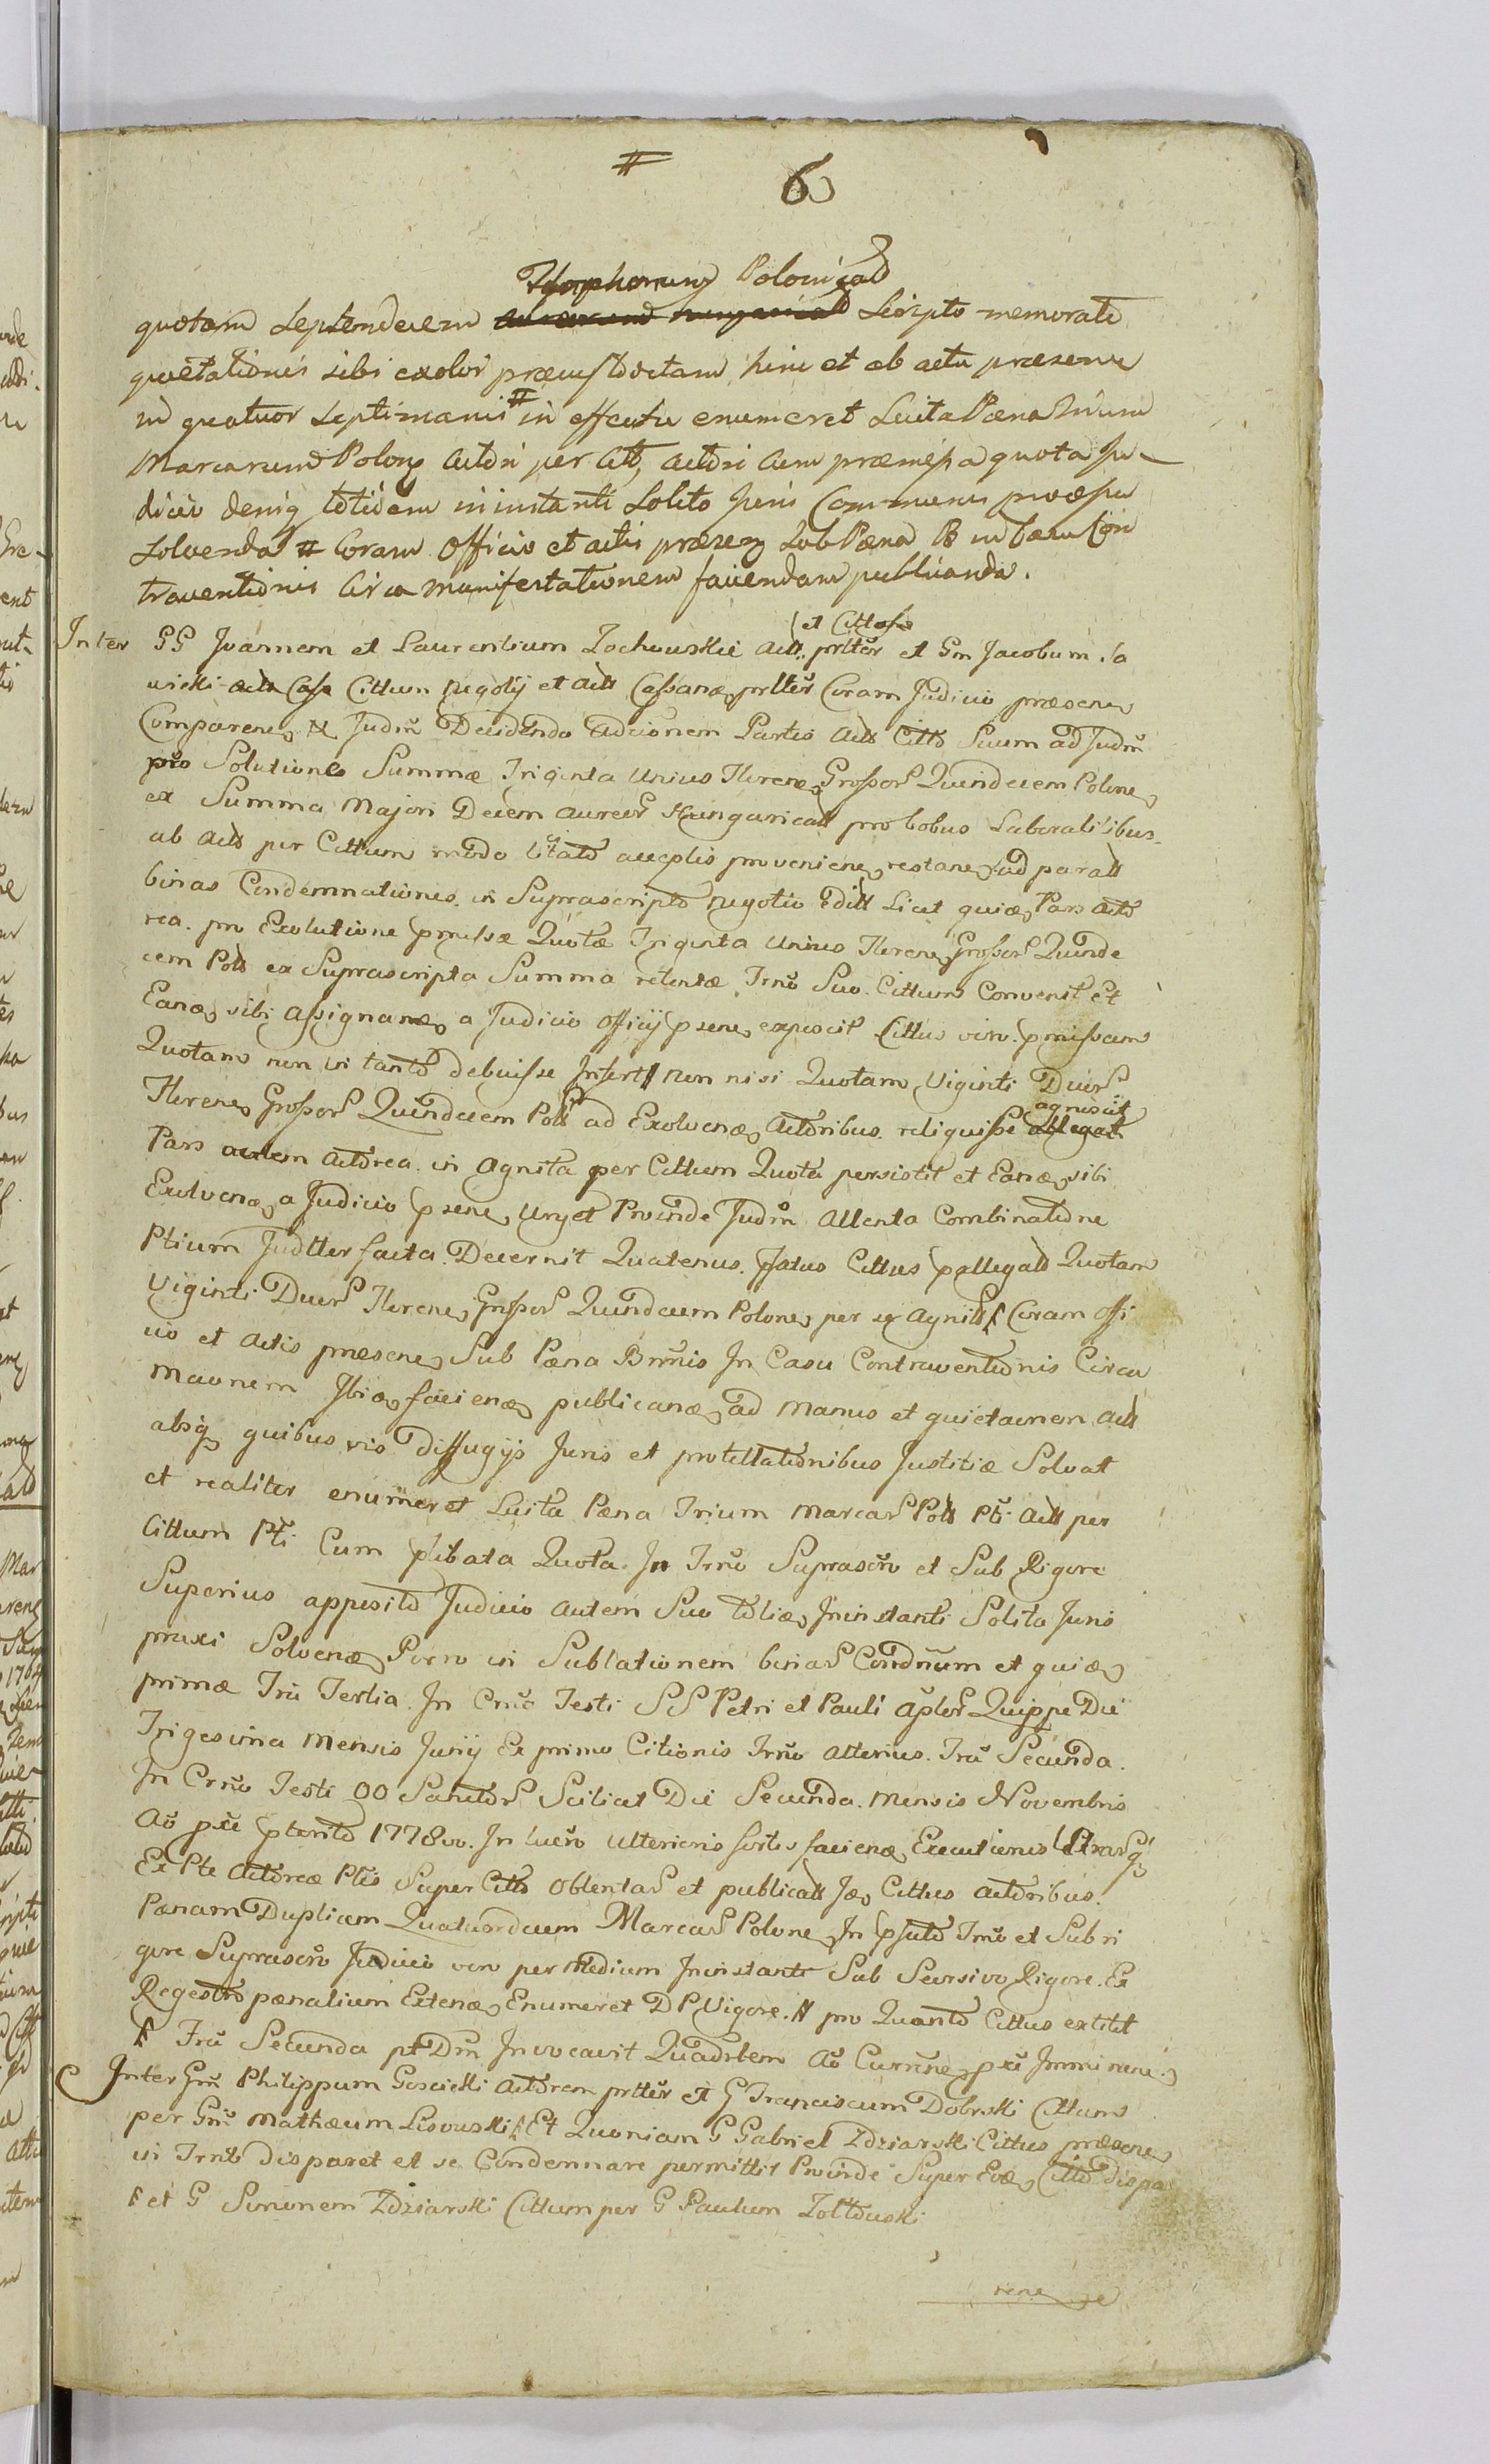 6
Polonical
quotam Septendecem Scripto memorati
quietationis sibi exolvi præcustoditam, hinc et ab actu præsenti
in quatuor Septimanis # in effectu enumeret Luita Pæna Trium
Marcarum Polong Actori per Citt, Actori cum præmissa quota Ju-
dicio deniq totidem in instanti Solito Juris Communis processu
Solvenda # Coram Officio et actis præseng Sub Pæna B in Casu Con
traventionis Circa manifestationem faciendam publicanda.
et Cittos
Inter GG Joannem et Laurentium Zochowskie Act. prltter et Gm Jacobum Sa
wicki Citum Negotij et Act Cassanæ prltter Coram Judicio præsene
Comparene, N Judm Decidendo Adcionem Partis Act Citt Suum ad Judm
pro Solutione Summæ Triginta Unius Florene, Grossor Quindecem Polone,
ex Summa Majori Decem aureor Hungarical pro bobus Laboralibus
ab Act per Cittum modo citato acceptis proveniene, restane, ad parall
binas Condemnationes in Suprascripto Negotio Edit Licet quiæ, Pars Acto
rea pro Exolutione pmissæ Quotæ Triginta Unius Florene, Grossor Quinde
cem Poll ex Suprascripta Summa retentæ Trno Suo Cittum Convenit Et
Eanæ, sibi Assignanæ, a Judicio Officij psene, exposcit Cittus vero pmissam
Quotam non in tanto debuisse Infert non nisi Quotam Viginti Duor
Florene, Grossor Quindecem Poll ad Exolvenæ, Actoribus reliquisse agnoscit
Pars autem Actorea in Agnita per Cittum Quota persistit et Eanæ, sibi
Exolvenæ, a Judicio psene, Urget Proinde Judm Attenta Combinatione
Ptium Judtter facta Decernit Quatenus pfatus Cittus pallegato Quotam
Viginti Duor Florene, Grossor Quindecem Polone, per se Agnitt Coram Offi
cio et Actis præsene, Sub Pæna Bnnis In Casu Contraventionis Circa
Maonem Ibiæ, facienæ, publicanæ, ad Manus et quietaonem Act
absq quibus vis Diffugijs Juris et protellationibus Justitiæ Solvat
et realiter enumeret Luita Pæna Trium Marcar Poll Pti Act per
Cittum Pti Cum plibata Quota In Trno Suprascro et Sub Rigore
Superius apposito Judicio autem Suo totiæ, Ininstanti Solita Juris
praxi Solvenæ, Porro in Sublationem binar Condnum et quiæ,
primæ Tru Tertia In Crno Festi SS Petri et Pauli Aplor Quippe Die
Trigesima Mensis Junij Ex primo Citionis Trno Alterius Tru Secunda
In Crno Festi OO Sanctor Scilicet Die Secunda Mensis Novembris
Ao pxe pterito 1778vo. In lucro Ulterioris sortis facienæ, Executionis
Ex Pte Actoreæ Ptis Super Citto Obtentar et publicatt Jæ, Cittus Actoribus
Pænam Duplicem Quatuordecem Marcar Polone, In psuto Trno et Sub ri
gore Suprascro Judicio vero per Medium Ininstanti Sub Seorsivo Rigore Ex
Regestro pænalium Extenæ, Enumeret D P Vigore. N pro Quanto Cittus extitit
Tru Secunda pt Dm Invocavit Quadrlem Ao Currene, pxe Imminene,
Inter Gm Philippum Goscicki Actorem prltter et G Franciscum Dobrski Cittum
per Gm Mathæum Lisowski Et Quoniam G Gabriel Zdziarski Cittus præsene,
in Trno disparet et se Condemnare permittit Proinde Super Eoæ, Citto Dispa
et G Simonem Zdziarski Cittum per G Paulum Zołtowski
rene